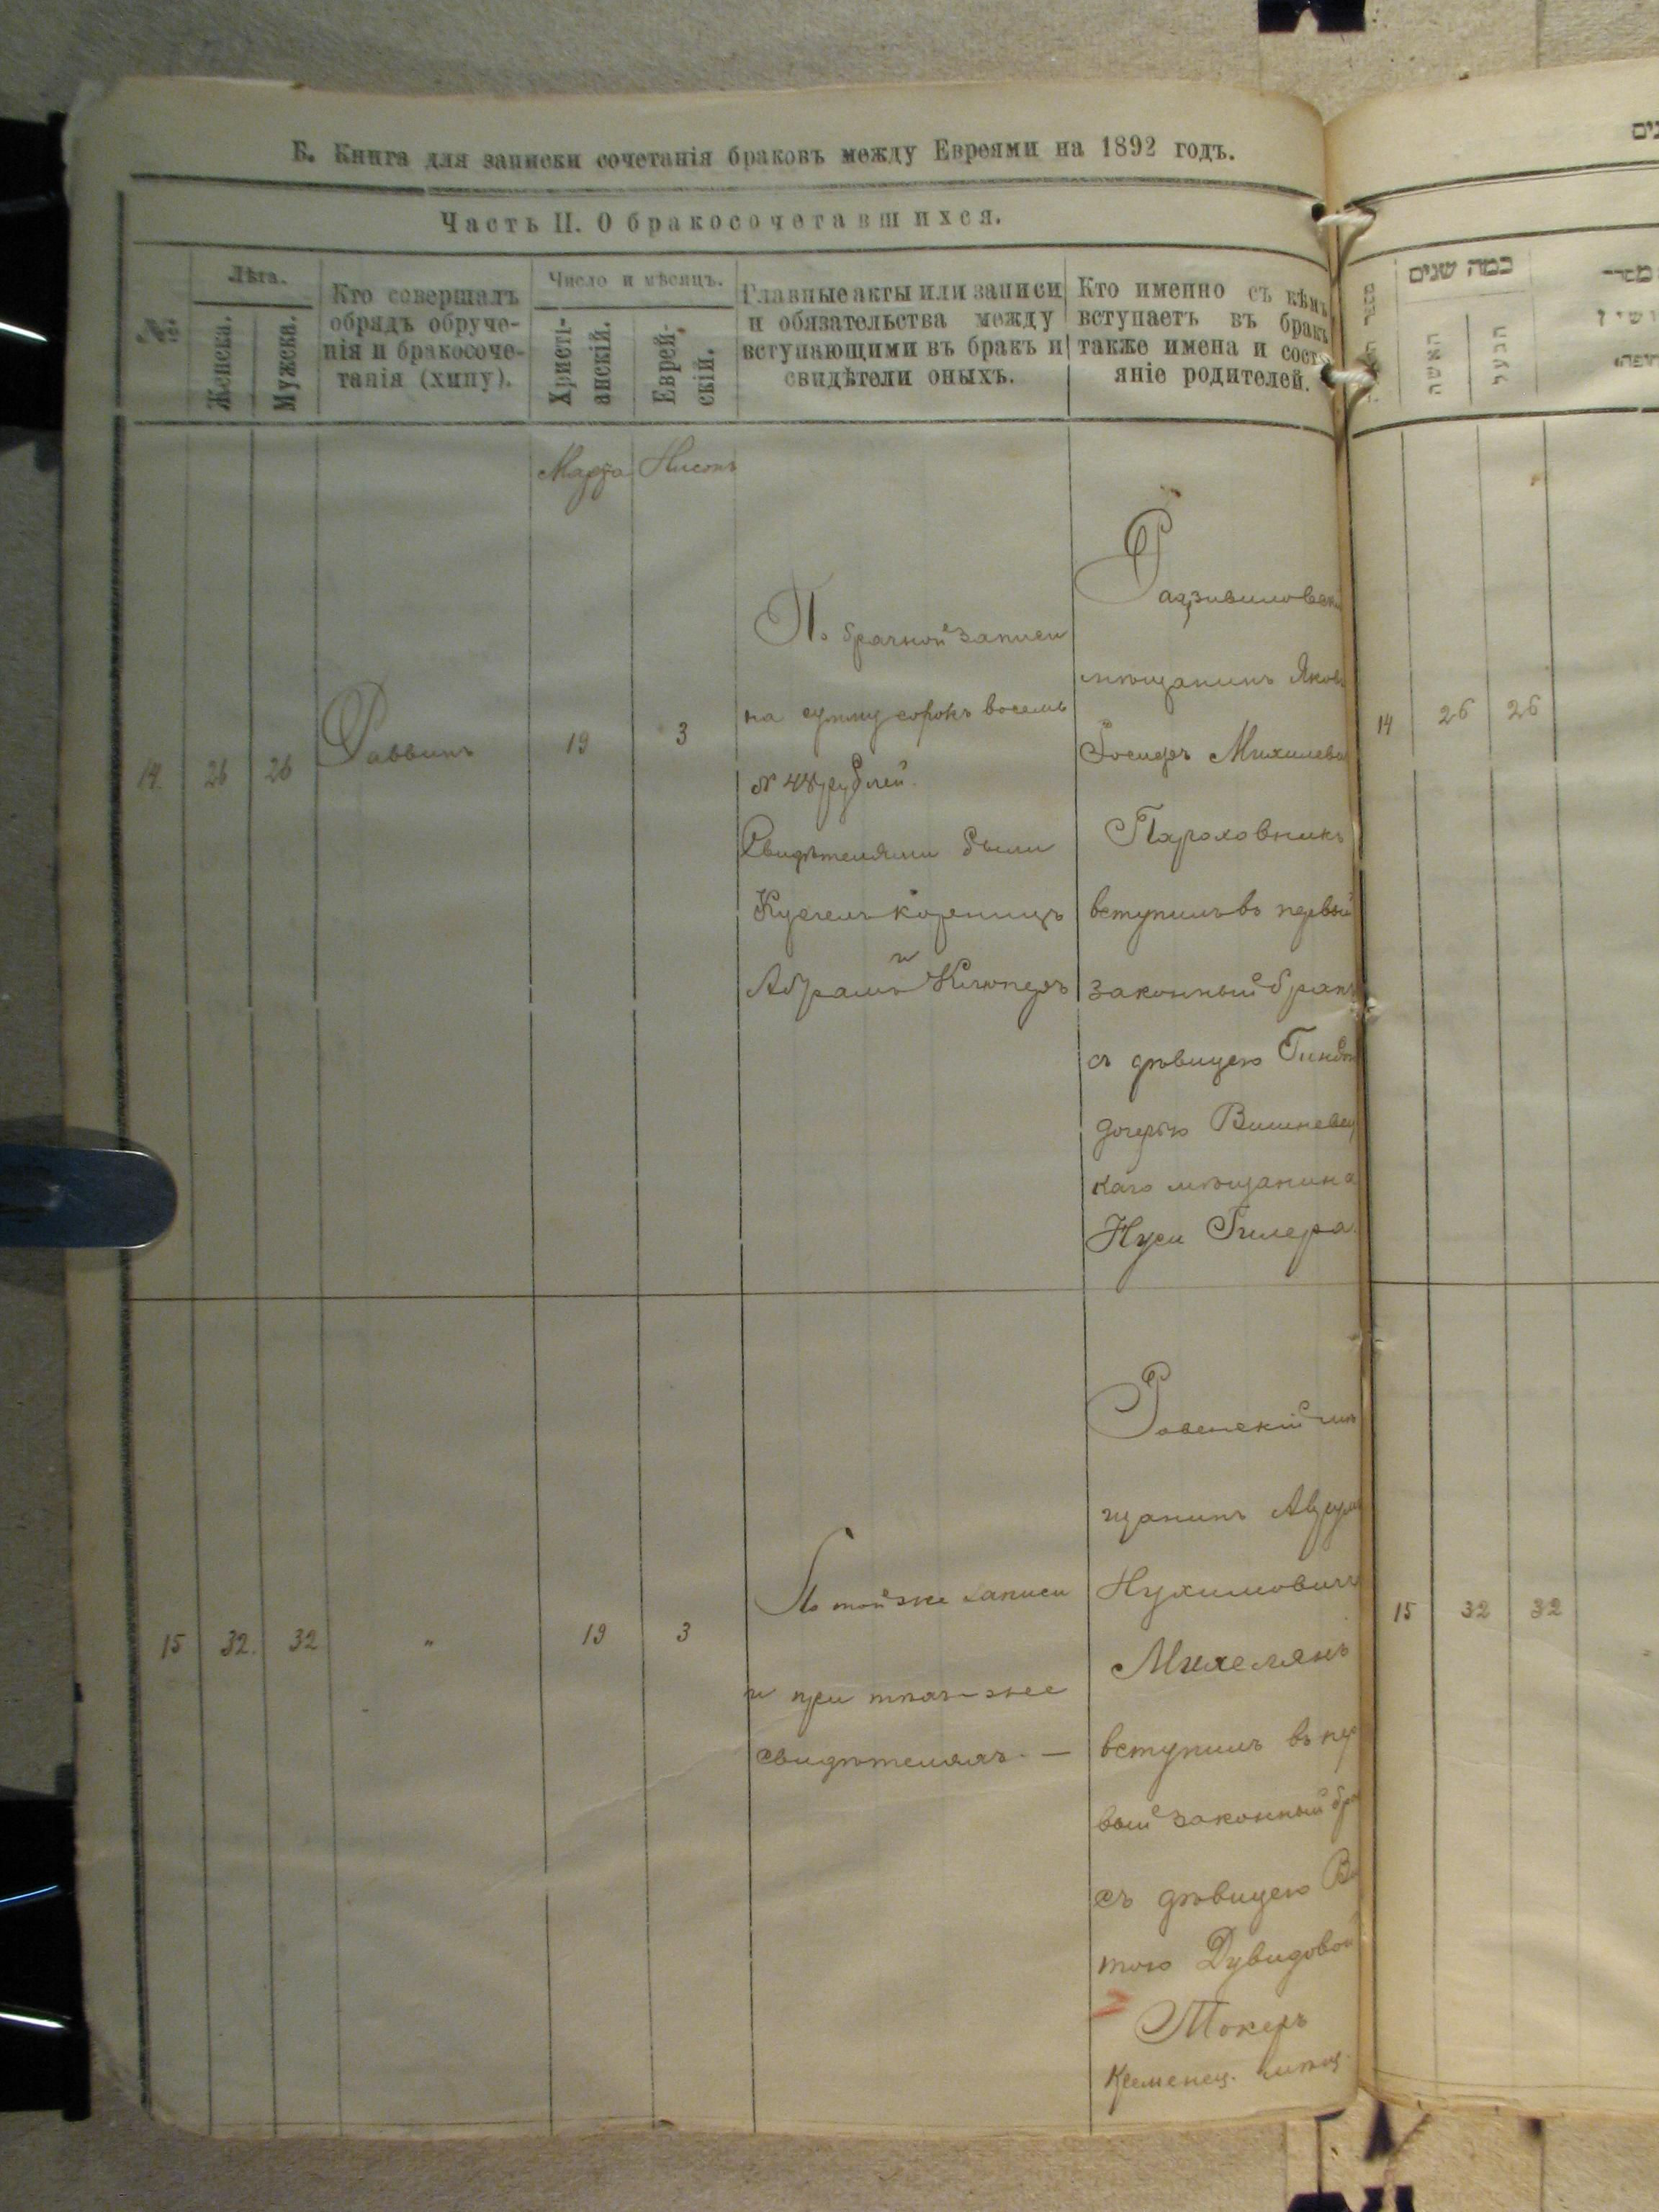 Б. Книга для записки сочетанія браковъ между Евреями на 1892 годъ.
Часть II. О бракосочетавшихся.
№
Лѣта.
Женска.
Мужска.
Кто совершалъ
обрядъ обруче-
нія и бракосоче-
танія (хипу).
Число и мѣсяцъ.
Христі-
анскій.
Еврей-
скій.
Главные акты или записи
и обязательства между
вступающими въ бракъ и
свидѣтели оныхъ.
Кто именно съ кѣмъ
вступаетъ въ бракъ
также имена и сост-
яніе родителей.
Марта
Нисонъ
14
26
26
Раввинъ
19
3
По брачной записи
на сумму сорокъ восемь
№ 48 рублей.
Свидѣтелями были
и
Абрамъ
Радзивиловск
мѣщанинъ Яковъ
Михилев
Пороховникъ
вступилъ въ первый
законный бракъ
съ дѣвицею
дочерью Вишневец
каго мѣщанина
Нуси Гилера.
15
32.
32
"
19
3
По той же записи
и при тѣхъ-же
свидѣтеляхъ. —
Ровенскій мѣ
щанинъ
Нухимовичъ
вступилъ въ пер
вый законный бра
съ дѣвицею Ви
тою Дувидовой
Токеръ
Кременец. мѣщ.
כמה שנים
האשה
הבעל
14
26
26
15
32
32